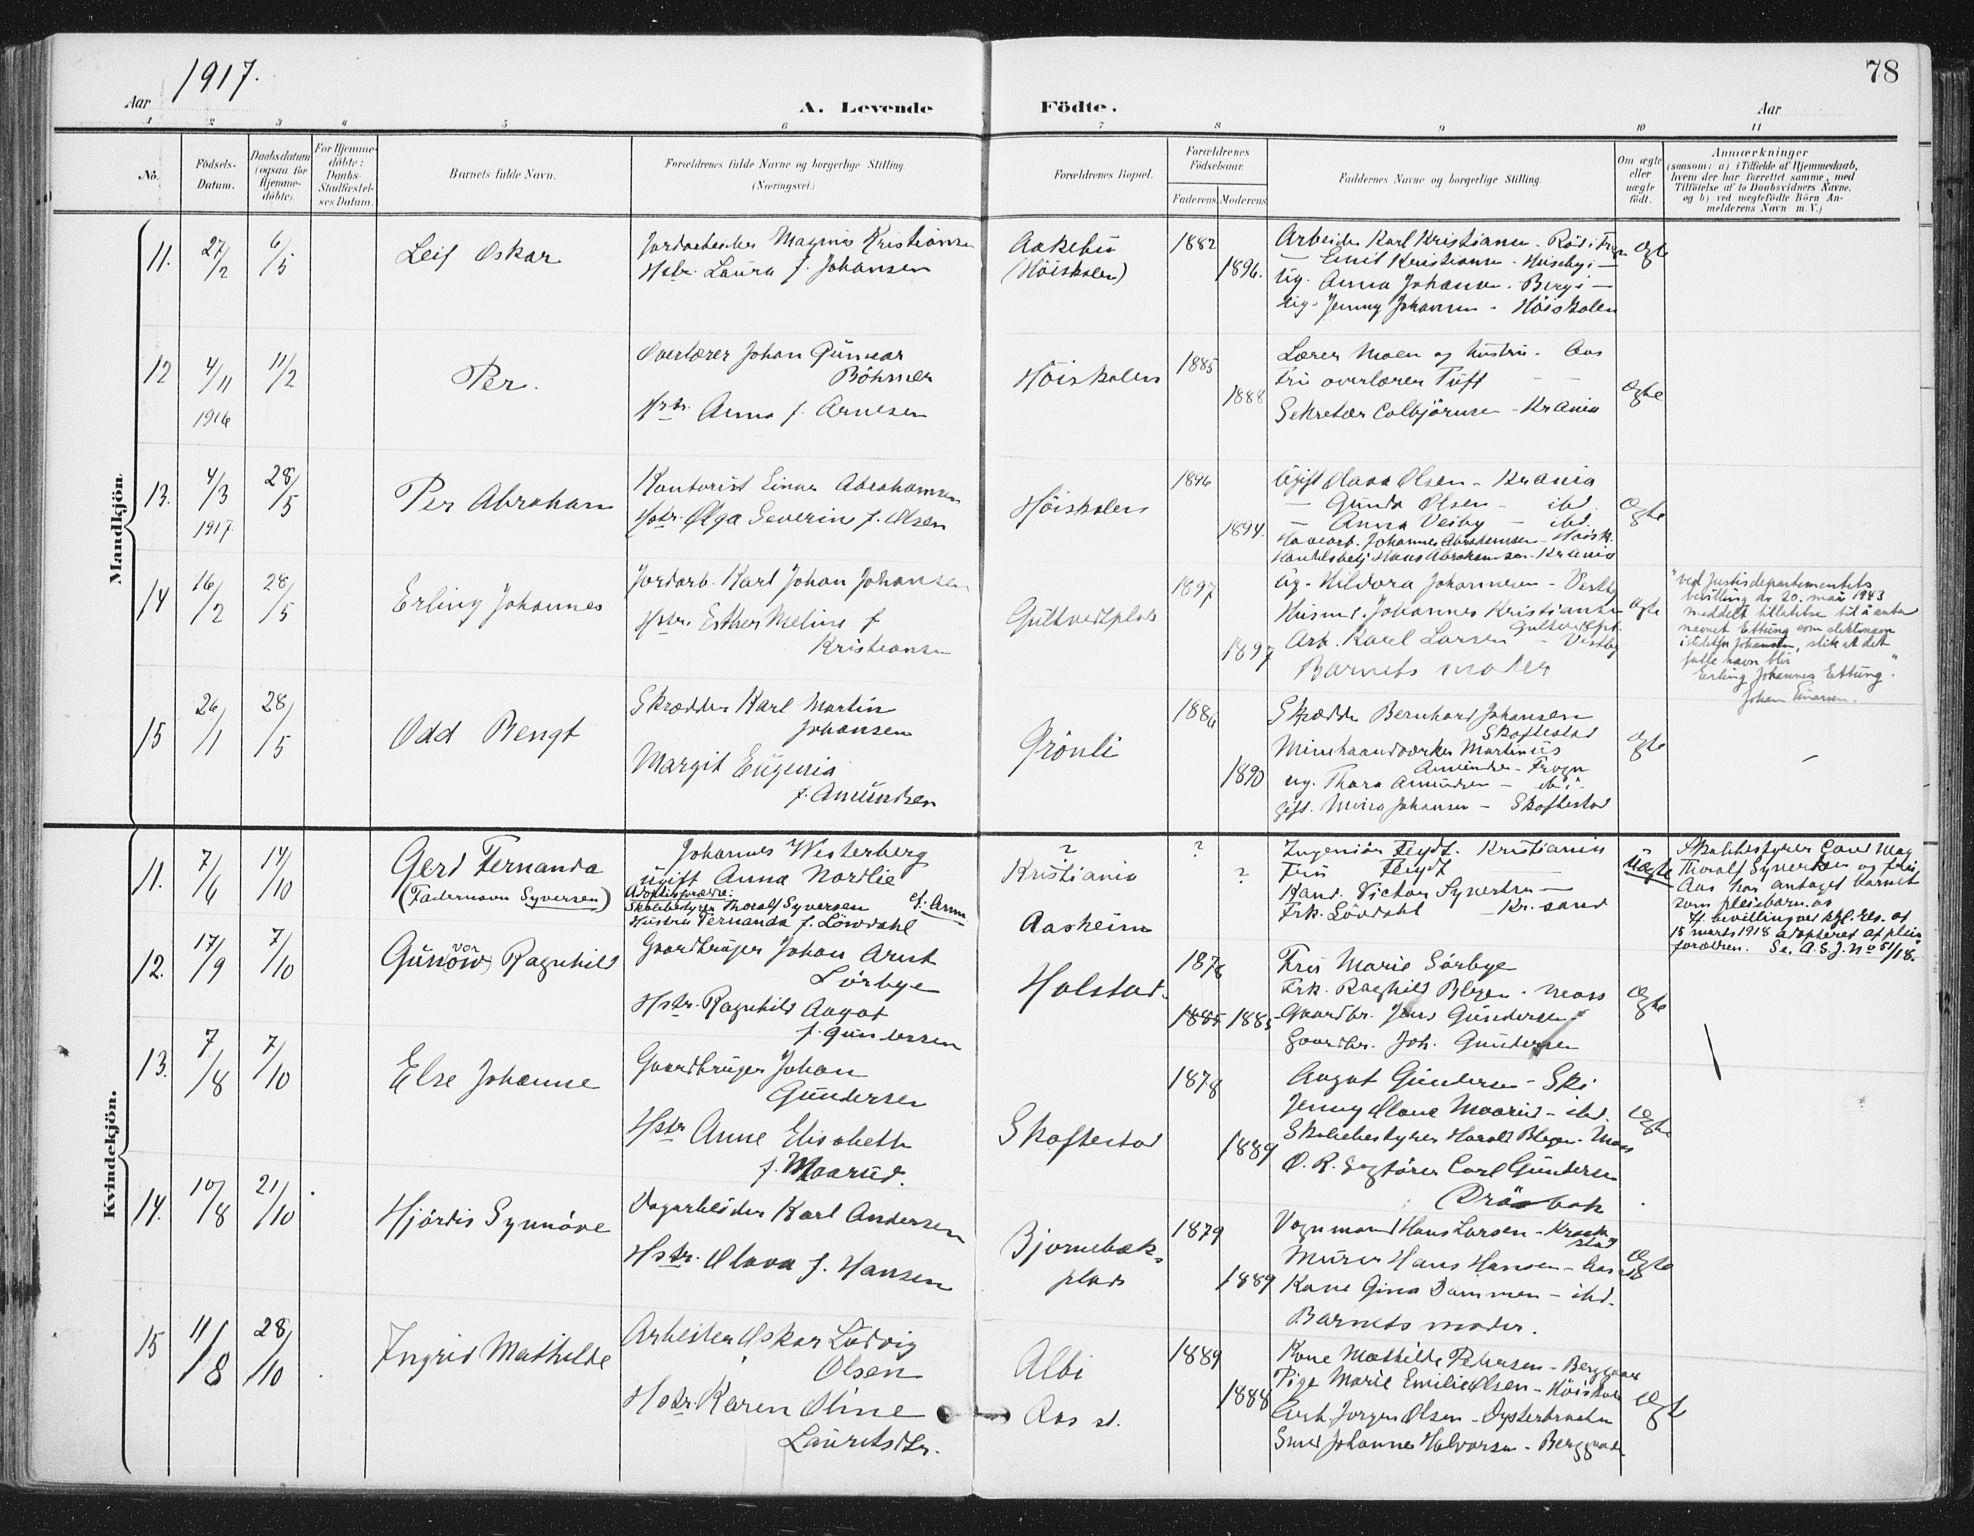 1917.
78
Aar
A. Levende
Födte.
Aar
1 2 3 4 5 6 7 8 9 10 11
No.
Födsels-Datum.
Daabsdatum (ogsaa for Hjemme-döbte).
For Hjemme-döbte: Daabs-Stadfæstel-ses Datum.
Barnets fulde Navn.
Forældrenes fulde Navne og borgerlige Stilling.
(Næringsvei.)
Forældrenes Bopæl.
Forældrenes Födselsaar.
Faderens. Moderens.
Faddernes Navne og borgerlige Stilling.
Om ægte eller uægte födt.
Anmærkninger
(saasom: a) i Tilfælde af Hjemmedaab,
hvem der har forrettet samme, med
Tilföielse af to Daabsvidners Navne.
og b) ved uægtefödte Börn An-
melderens Navn m. V.)
Mandkjön.
11. 27/2 6/5
Leif Oskar
Magnus Kristiansen
Hstr. Laura f. Johansen
Aakebu
(Höiskolen)
1882
1896.
Arbeider Karl Kristiansen - Röd i Frogn
— Emil Kristiansen - Huseby i —
Ug. Anna Johansen - Berg i —
Ug. Jenny Johansen - Höiskolen
Ægte
12 4/11 11/2
1916
Per.
Overlærer Johan Gunnar
Böhmer
Hstr. Anna f. Arnesen
Höiskolen
1885
1888
Lærer Moen og hustru - Aas
Fru overlærer Tuft — —
Sekretær Colbjörnsen - Krania
Ægte
13. 4/3 28/5
1917.
Per Abraham
Kontorist Einar Abrahamsen
Hstr. Olga Severine f. Olsen
Höiskolen
1896
1894.
Ugift Olava Olsen - Krania
— Gunda Olsen - ibd.
— Anna Veiby — ibd.
Havearb. Johannes Abrahamsen - Höisk.
Handelsbetj. Hans Abrahamsen - Krania
Ægte
14 16/2 28/5
Erling Johannes
Jordarb. Karl Johan Johansen
Hstr. Esther Meline f
Kristiansen
Gultvedtplads
1897
1897
Ug. Hildora Johannesen - Vestby
Husm. Johannes Kristiansen
Gultvedtpl.
Arb. Karel Larsen — Vestby
Barnets moder
Ægte
"ved Justisdepartementets
bevilling av 20. mai 1943
meddelt tillatelse til å anta
navnet Ettung som slektsnavn
istedetfor Johansen, slik at det
fulle navn blir
Erling Johannes Ettung."
Johan Einarsen.
15 26/1 28/5
Odd Bengt
Skrædder Karl Martin
Johansen
Margit Eugenia
f. Amundsen
Grönli
1886
1890
Skrædder Bernhard Johansen
Skoftestad
Minehaandværker Martinius
Amundsen - Frogn
ug. Thora Amundsen — ibd.
gift. Mina Johansen — Skoftestad
Ægte
Kvindekjön.
11. 7/6 14/10
Gerd Fernanda
(Fadernavn Syversen)
Johannes Westerberg
ugift Anna Nordlie
Adoptivforældre:
Skolebestyrer Thoralf Syversen
Hustru Fernanda f. Löwdahl
?
Kristiania
Aasheim
? ?
Ingeniör Flydt. Kristiania
Fru Flydt —
Kand. Victor Syvertsen —
Frk. Lövdahl Kr.sand
Uægte
Skolebestyrer Carl Mag
Thoralf Syvertsen og frue
Aas har antaget barnet
som pleiebarn og
if. bevilling ved kgl. res. af
15 marts 1918 adopteret af pleie
forældren. Se. A.S.J. No 51/18.
12. 17/9 7/10
Gunvor Ragnhild
Gaardbruger Johan Arnt
Sörbye
Hstr. Ragnhild Aagot
f. Gundersen
Holstad.
1876
1885 1885
Fru Marie Sörbye
Frk. Ragnhild Blegen - Moss
Gaardbr. Jens Gundersen
Gaardbr. Joh. Gundersen
Ægte
13. 7/8 7/10
Else Johanne
Gaardbruger Johan
Gundersen
Hstr Anne Elisabeth
f. Maarud.
Skoftestad
1878
1889
Aagot Gundersen - Ski
Jenny Olave Maarud - ibd.
Skolebestyrer Harald Blegen - Moss
O. R. Sagförer Carl Gundersen
Dröbak
Ægte
14. 10/8 21/10
Hjördis Synnöve
Dagarbeider Karl Andersen
Hstr. Olava f. Hansen
Bjornebæk-
plads
1879
1889
Vognmand Hans Larsen - Kraakstad
Murer Hans Hansen - Aas
Kone Gina Dammen - ibd.
Barnets moder.
Ægte
15 11/8 28/10
Ingrid Mathilde
Arbeider Oskar Ludvig
Olsen
Hstr. Karen Oline
Lauritsdtr.
Albi
Aas st.
1889
1888
Kone Mathilde Petersen - Berggaard
Pige Marie Emilie Olsen - Höiskolen
Jorgen Olsen - Dysterbraaten
Smed Johannes Halvorsen - Berggaarden
Ægte